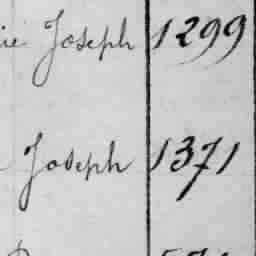 Joseph 1299
Joseph 1371